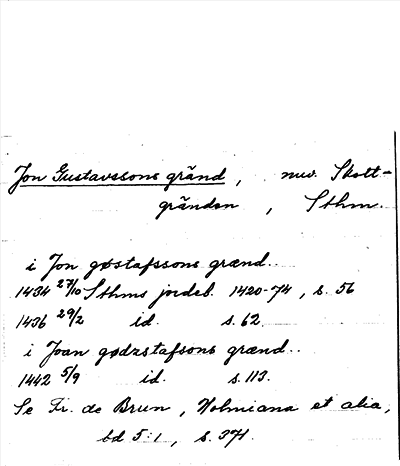 Jon Gustavssons gränd, nuv. Skott-
gränden, Sthm.
i Jon gøstafssons grænd..
1434 27/10 Sthms jordeb. 1420-74, s. 56
1436 29/2 id. s. 62
i Joan gødzstafsons grænd..
1442 5/9 id. s. 113.
Se Fr. de Brun, Holmiana et alia,
bd 5:1, s. 371.